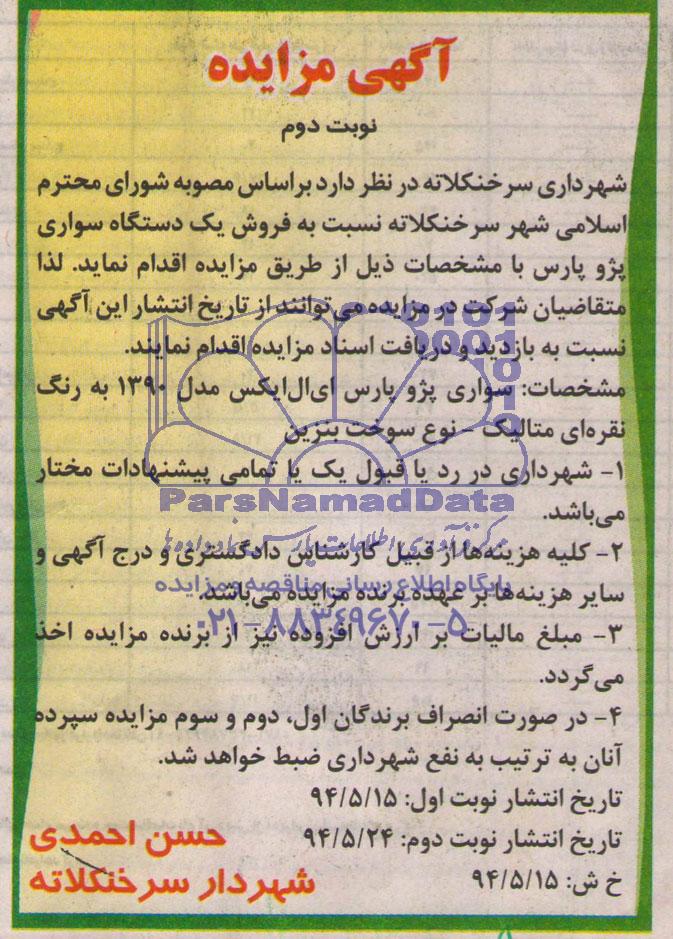 آگهی مزایده
نوبت دوم
شهرداری سرخنکلاته در نظر دارد براساس مصوبه شورای محترم
اسلامی شهر سرخنکلاته نسبت به فروش یک دستگاه سواری
پژو پارس با مشخصات ذیل از طریق مزایده اقدام نماید. لذا
متقاضیان شرکت در مزایده می‌توانند از تاریخ انتشار این آگهی
نسبت به بازدید و دریافت اسناد مزایده اقدام نمایند.
مشخصات: سواری پژو پارس ای‌ال‌ایکس مدل ۱۳۹۰ به رنگ
نقره‌ای متالیک - نوع سوخت بنزین
۱- شهرداری در رد یا قبول یک یا تمامی پیشنهادات مختار
ParsNamadData
می‌باشد.
مرکز فرآوری اطلاعات پارس نماد داده‌ها
۲- کلیه هزینه‌ها از قبیل کارشناس دادگستری و درج آگهی و
پایگاه اطلاع رسانی مناقصه و مزایده
سایر هزینه‌ها بر عهده برنده مزایده می‌باشد.
۰۲۱-۸۸۳۴۹۶۷۰-۵
۳- مبلغ مالیات بر ارزش افزوده نیز از برنده مزایده اخذ
می‌گردد.
۴- در صورت انصراف برندگان اول، دوم و سوم مزایده سپرده
آنان به ترتیب به نفع شهرداری ضبط خواهد شد.
تاریخ انتشار نوبت اول: ۹۴/۵/۱۵
تاریخ انتشار نوبت دوم: ۹۴/۵/۲۴
خ ش: ۹۴/۵/۱۵
حسن احمدی
شهردار سرخنکلاته